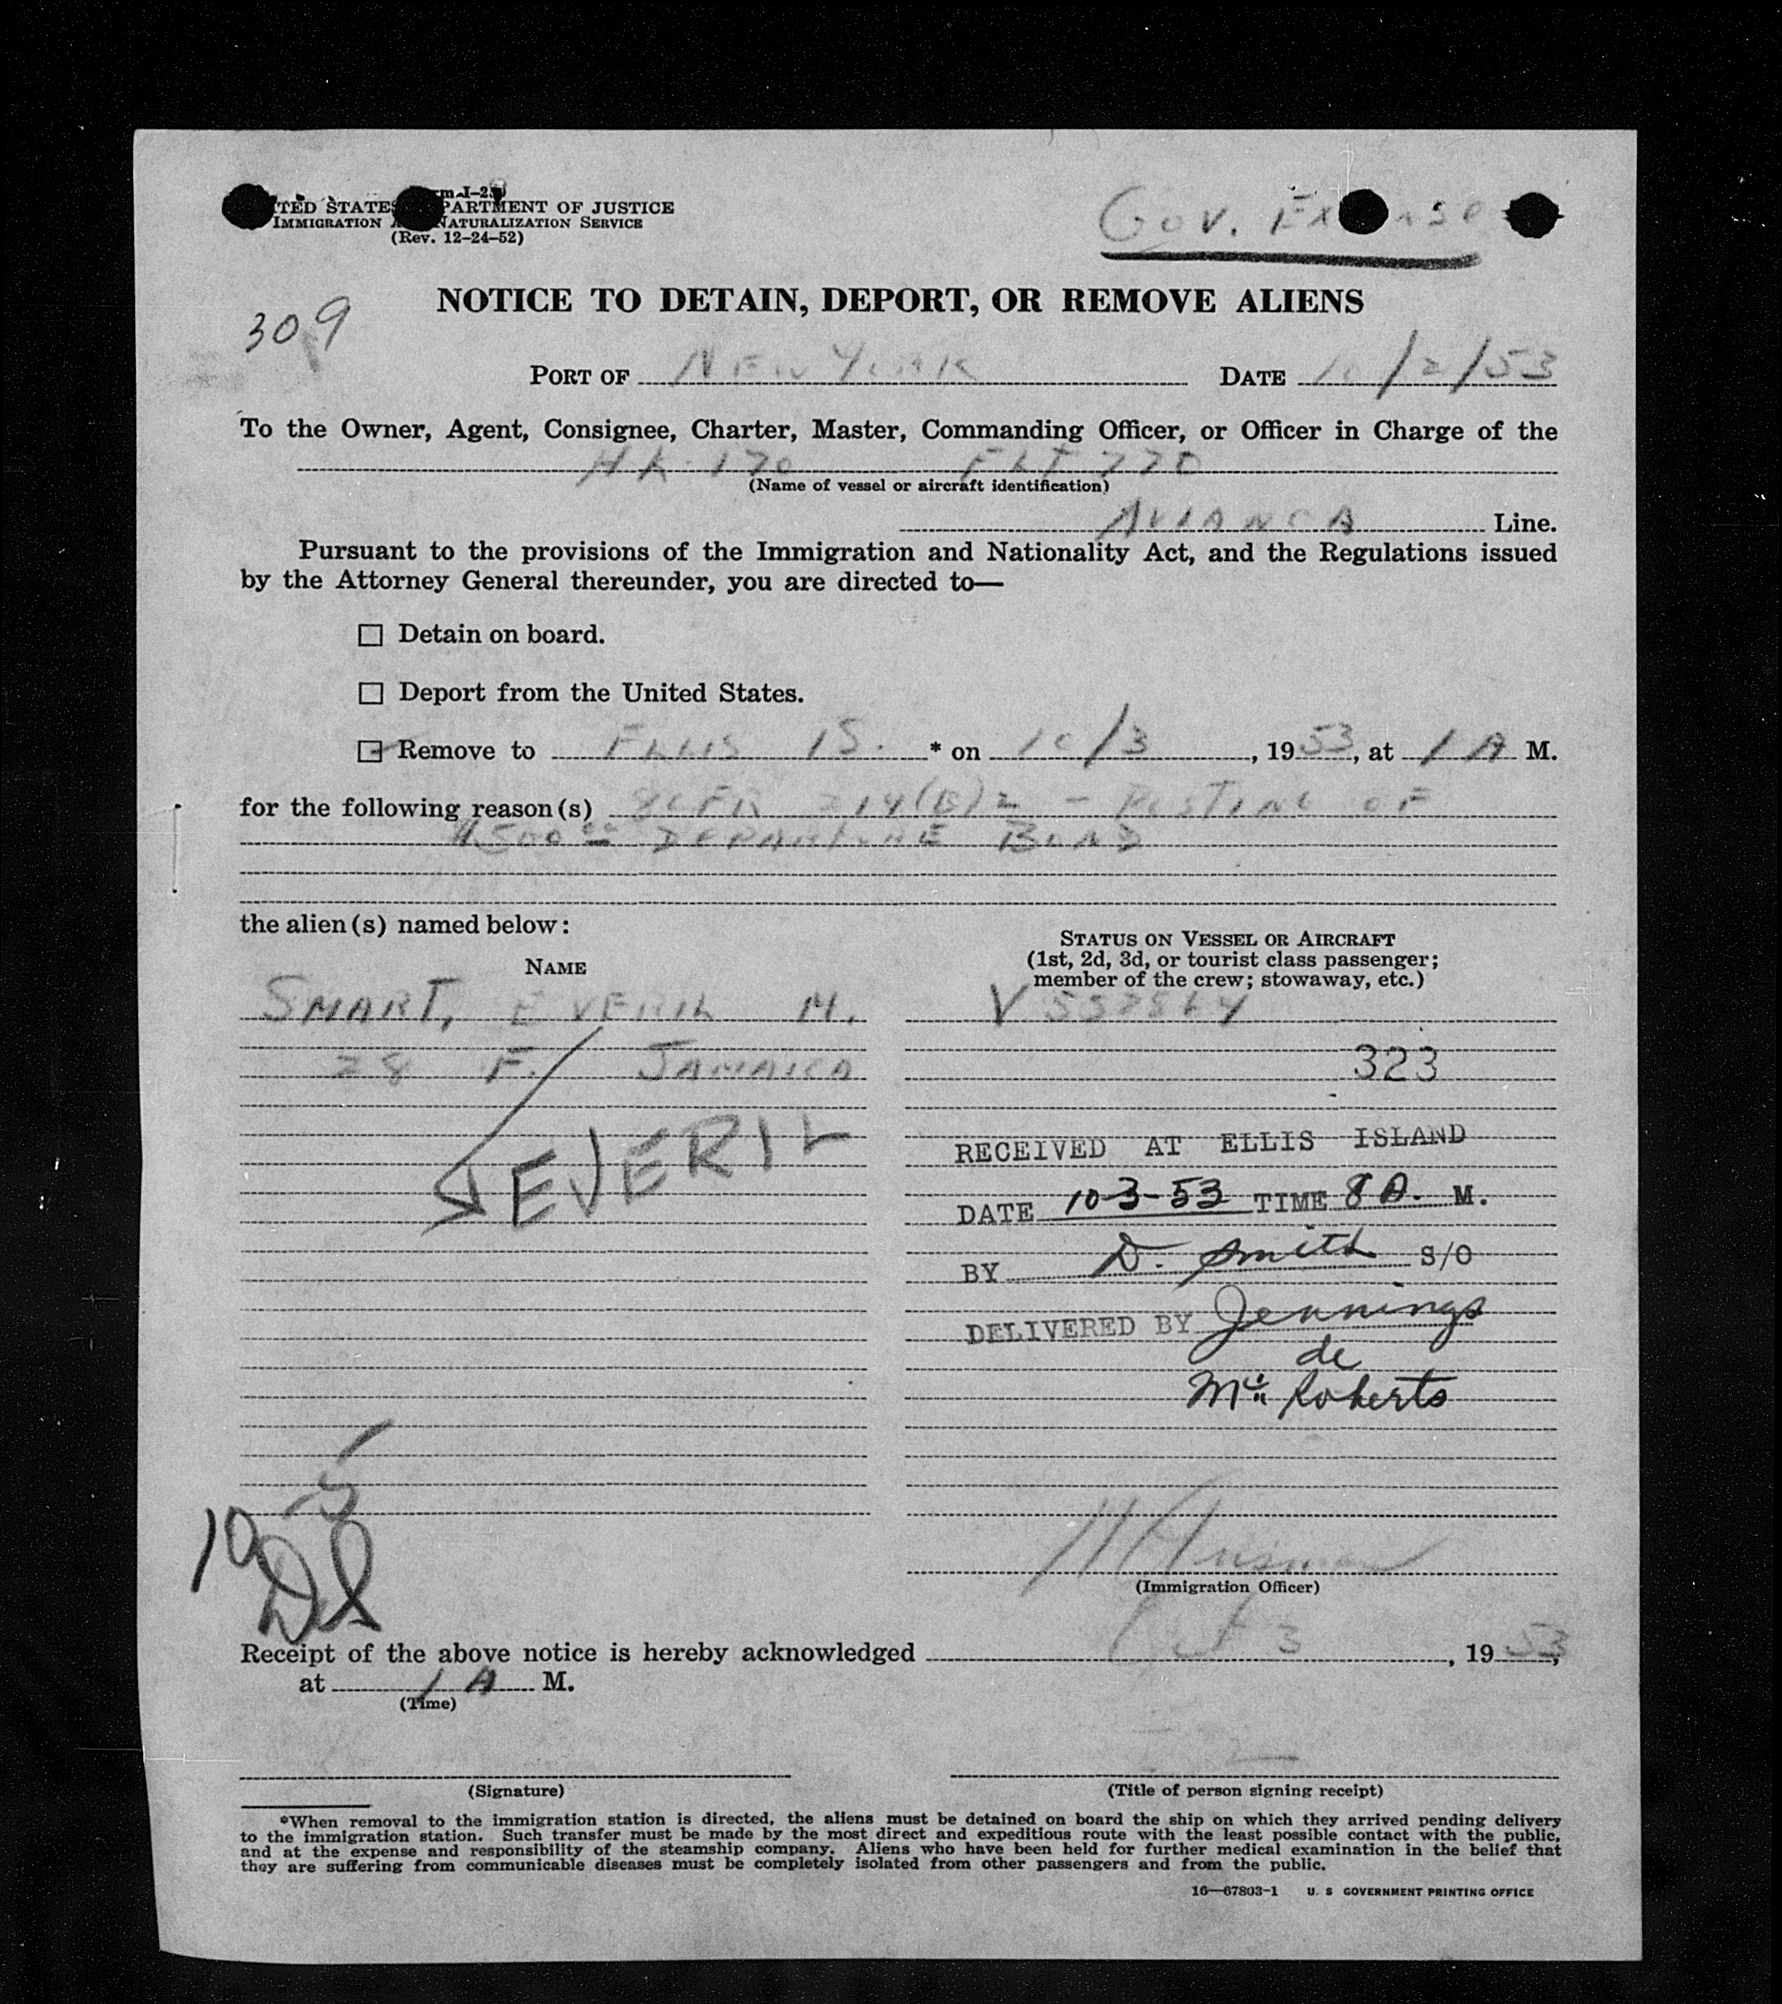 Gov. Ex nse
TED STATES PARTMENT OF JUSTICE
IMMIGRATION NATURALIZATION SERVICE
(Rev. 12–24–52)
309
NOTICE TO DETAIN, DEPORT, OR REMOVE ALIENS
PORT OF NEW YORK DATE 10/2/53
To the Owner, Agent, Consignee, Charter, Master, Commanding Officer, or Officer in Charge of the
HK-170 FLT 770
(Name of vessel or aircraft identification)
AVIANCA Line.
Pursuant to the provisions of the Immigration and Nationality Act, and the Regulations issued
by the Attorney General thereunder, you are directed to—
☐ Detain on board.
☐ Deport from the United States.
☑ Remove to ELLIS IS. * on 10/3, 1953, at 1 A M.
for the following reason(s) 8CFR 214(B)2 – POSTING OF
$500 00 DEPARTURE BOND
the alien(s) named below:
NAME
STATUS ON VESSEL OR AIRCRAFT
(1st, 2d, 3d, or tourist class passenger;
member of the crew; stowaway, etc.)
SMART, EVERIL M.
28 F. JAMAICA
EVERIL
323
RECEIVED AT ELLIS ISLAND
DATE 10-3-53 TIME 8 A. M.
BY D. Smith S/O
DELIVERED BY Jennings
de
Mc Roberts
10-5
(Immigration Officer)
Receipt of the above notice is hereby acknowledged Oct 3, 1953,
at 1 A M.
(Time)
(Signature)
(Title of person signing receipt)
*When removal to the immigration station is directed, the aliens must be detained on board the ship on which they arrived pending delivery
to the immigration station. Such transfer must be made by the most direct and expeditious route with the least possible contact with the public,
and at the expense and responsibility of the steamship company. Aliens who have been held for further medical examination in the belief that
they are suffering from communicable diseases must be completely isolated from other passengers and from the public.
16—67803-1 U. S GOVERNMENT PRINTING OFFICE